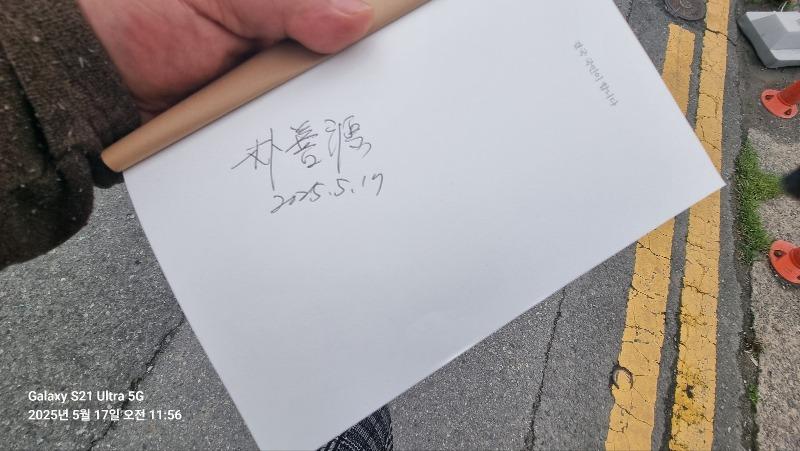 결국 국민이 합니다
朴善源
2025.5.17
Galaxy S21 Ultra 5G
2025년 5월 17일 오전 11:56